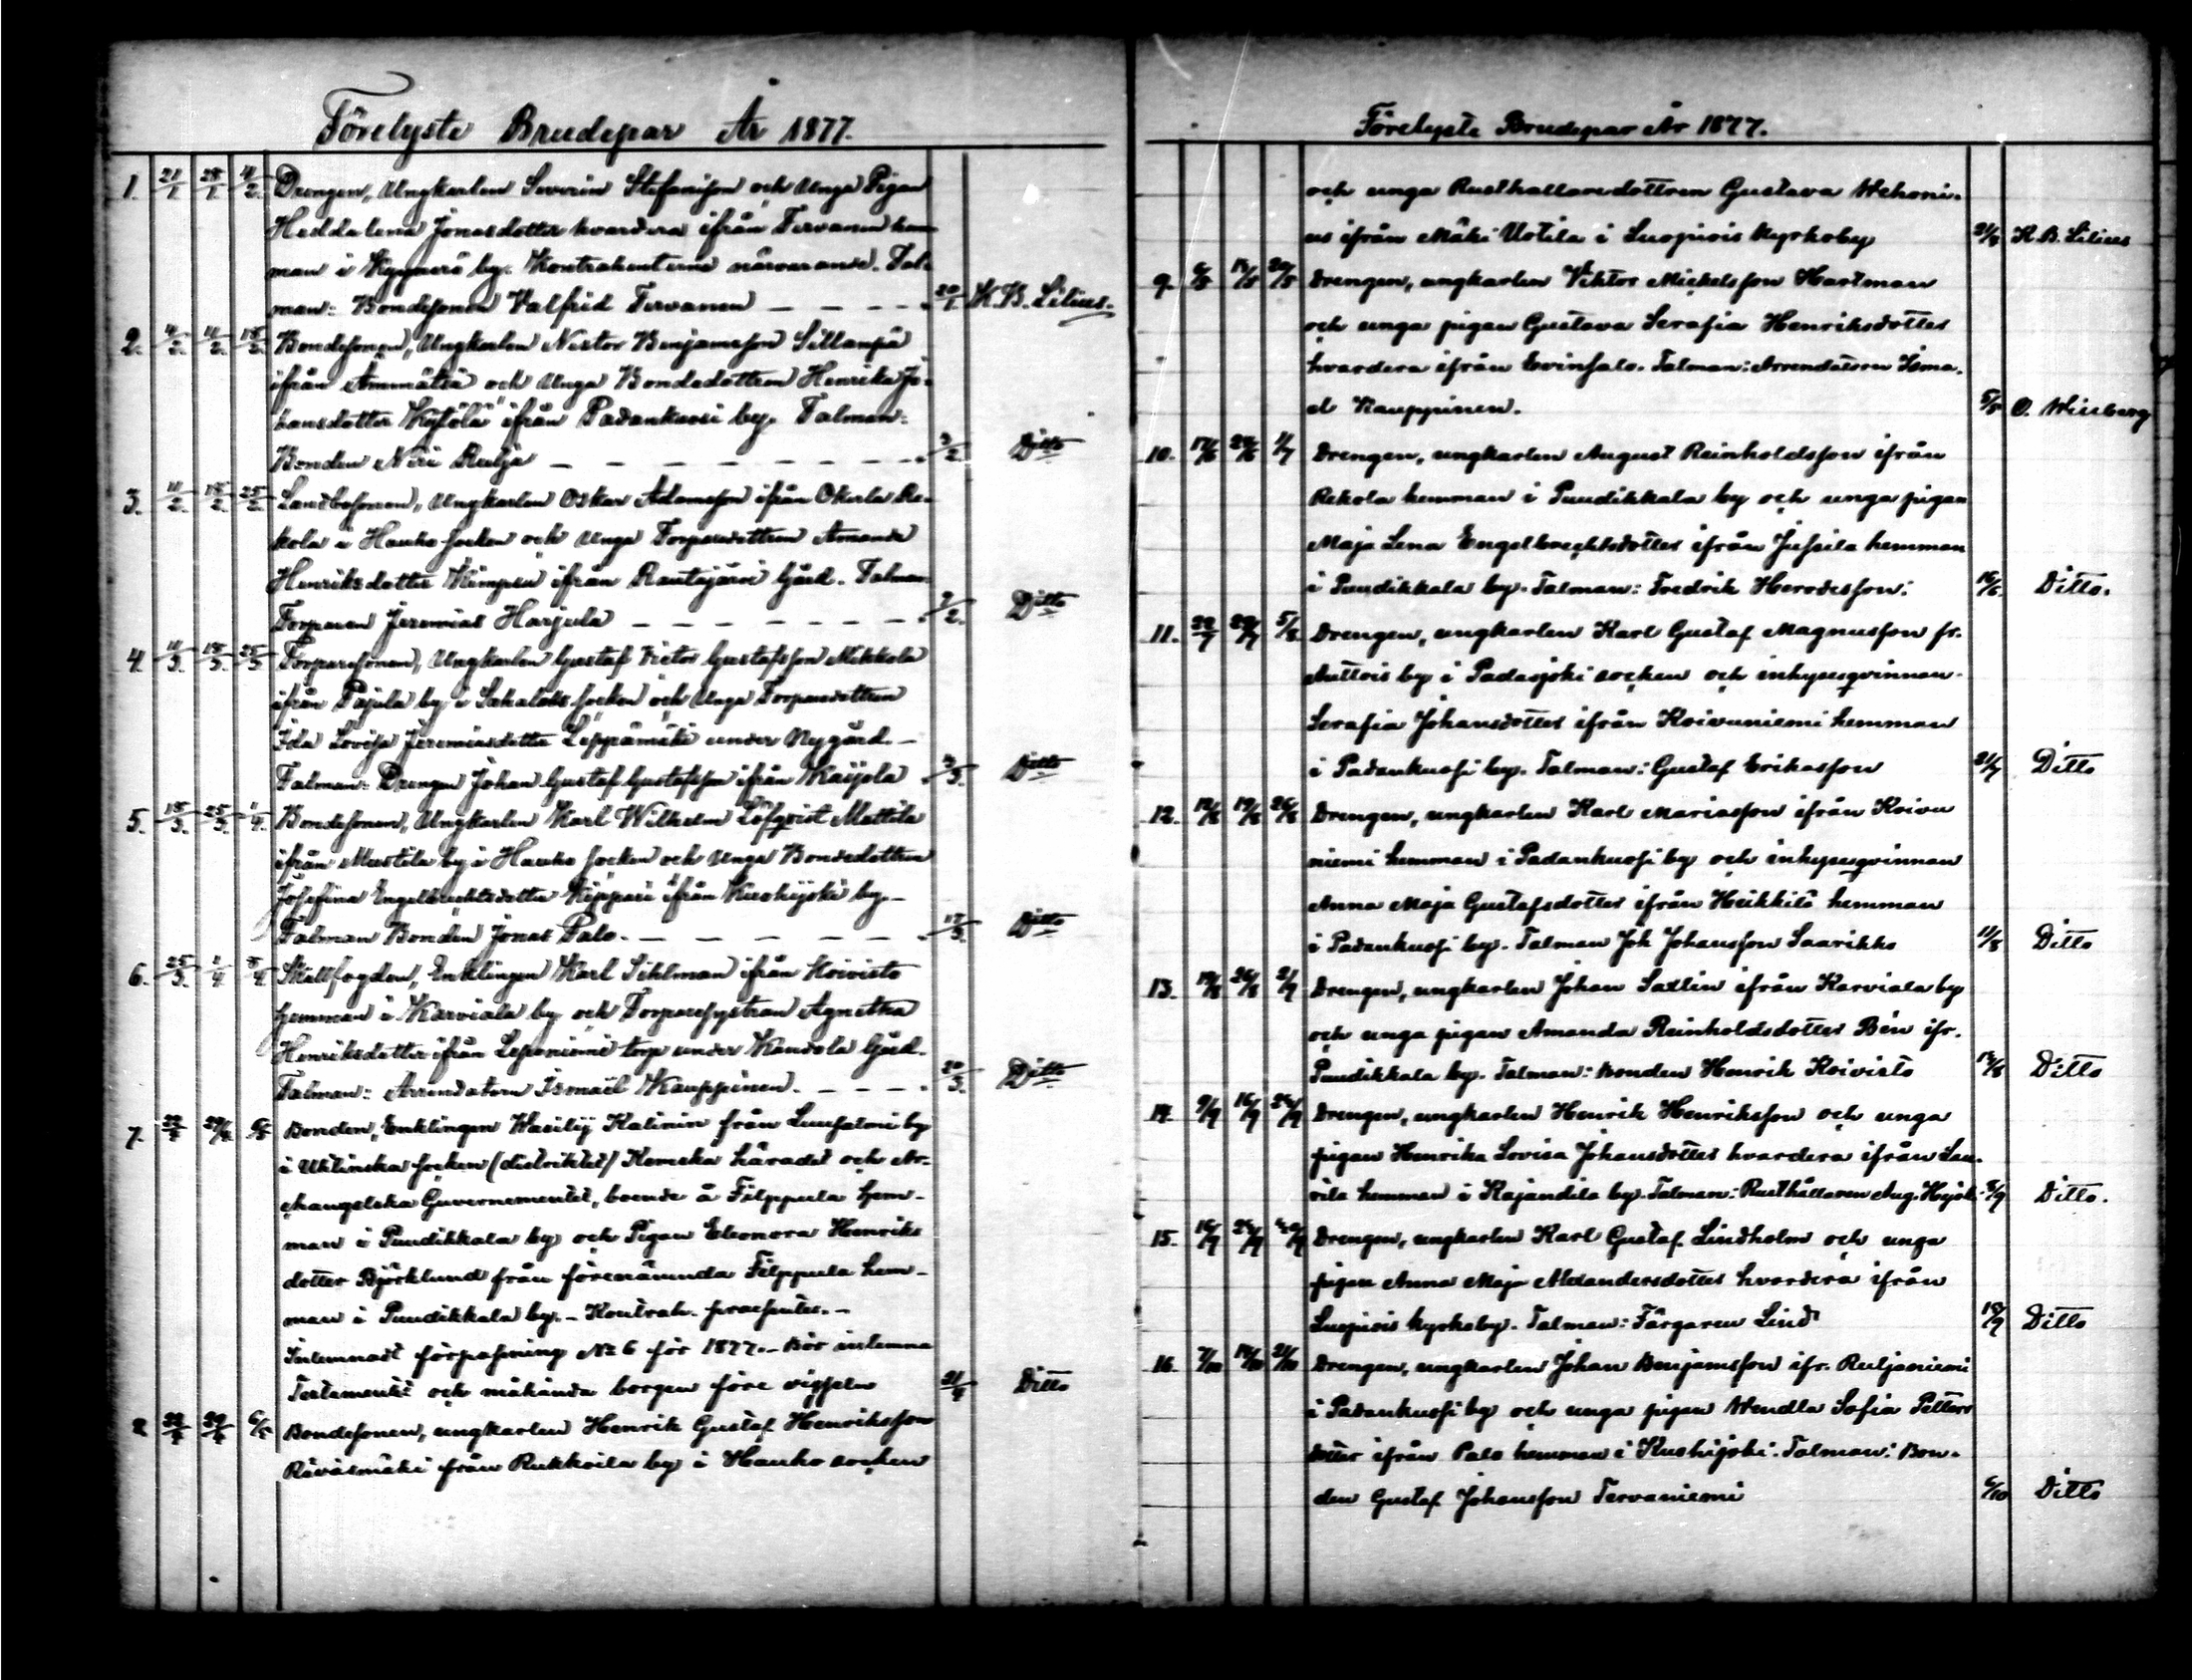 Förelyste Brudepar År 1877.
1. 21/1 28/1 4/2 Drengen, Ungkarlen Severin Stefansson och Unga Pigan
Heddalena Jonasdotter hvardera ifrån Tervanen hem-
man i Kyynärö by. Kontrahenterne närvarande. Tal-
man: Bondesonen Valfrid Tervanen — — — 20/1 K. B. Lilius.
2. 4/2 11/2 18/2 Bondesonen, Ungkarlen Nestor Benjamsson Sillanpä
ifrån Ämmätsä och Unga Bondedottren Henrika Jo-
hansdotter Kylölä ifrån Padankoski by. Talman:
Bonden Neri Rulja — — — 3/2 Ditto
3. 11/2 18/2 25/2 Landbosonen, Ungkarlen Oskar Adamsson ifrån Okerla Re-
kola i Hauho socken och Unga Torparedottren Amanda
Henriksdotter Kimpen ifrån Rautajärvi Gård. Talman
Torparen Jeremias Harjula — — — 7/2 Ditto
4. 11/3 18/3 25/3 Torparesonen, Ungkarlen Gustaf Victor Gustafsson Mikkola
ifrån Pajula by i Sahalaks socken och Unga Torparedottren
Ida Lovisa Jeremiasdotter Leppämäki under Nygård. —
Talman: Drengen Johan Gustaf Gustafsson ifrån 3/3 Ditto
5. 18/3 25/3 1/4 Bondesonen, Ungkarlen Karl Wilhelm Löfqvist Mattila
ifrån Mustila by i Hauho socken och Unga Bondedottren
Josefina Engelbrechtsdotter Kippari ifrån Kuohijoki by —
Talman Bonden Jonas Palo. — — — 17/3 Ditto
6. 25/3 1/4 8/4 Enklingen Karl Sihlman ifrån Koivisto
hemman i Karviala by och Torparesystran Agnetha
Henriksdotter ifrån Leponiemi torp under Wandola Gård.
Talman: Arrendatorn Ismaël Kauppinen. — — — 20/3 Ditto
7. 22/4 29/4 6/5 Bonden, Enklingen Wasilij Kalinin från by
i Uhtinska socken (distriktet) Kemska häradet och Ar-
changelska Guvernementet, boende å Filppula hem-
man i Puudikkala by och Pigan Eleonora Henriks
dotter Björklund från förenämnda Filppula hem-
man i Puudikkala by. — Kontrah. praesentes. —
Inlemnadt förpassning № 6 för 1877. — Bör inlemna
Testamentet och måhända borgen före vigseln 21/4 Ditto
8 22/4 29/4 6/5 Bondesonen, ungkarlen Henrik Gustaf Henriksson
Räväsmäki från Rukkoila by i Hauho socken
Förelyste Brudepar År 1877.
och unga Rusthållaredottren Gustava Wehoni-
us ifrån Mäki Uotila i Luopiois Kyrkoby 21/4 K. B. Lilius
9. 6/5 13/5 20/5 Drengen, ungkarlen Viktor Mickelsson Hartman
och unga pigan Gustava Serafia Henriksdotter
hvardera ifrån Evinsalo. Talman: Arrendatorn Isma-
el Kauppinen. 5/5 O. Winberg
10. 17/6 24/6 1/7 Drengen, ungkarlen August Reinholdsson ifrån
Rekola hemman i Puudikkala by och unga pigan
Maja Lena Engelbrechtsdotter ifrån Jussila hemman
i Puudikkala by. Talman: Fredrik Herodesson. 16/6 Ditto.
11. 22/7 29/7 5/8 Drengen, ungkarlen Karl Gustaf Magnusson fr.
Auttois by i Padasjoki socken och inhysesqvinnan
Serafia Johansdotter ifrån Koivuniemi hemman
i Padankoski by. Talman: Gustaf Eriksson 21/7 Ditto
12. 12/8 19/8 26/8 Drengen, ungkarlen Karl Mariasson ifrån Koivu
niemi hemman i Padankoski by och inhysesqvinnan
Anna Maja Gustafsdotter ifrån Heikkilä hemman
i Padankoski by. Talman Joh Johansson Saarikko 11/8 Ditto
13. 19/8 26/8 2/9 Drengen, ungkarlen Johan Saxlin ifrån Karviala by
och unga pigan Amanda Reinholdsdotter Bén ifr.
Puudikkala by. Talman: Bonden Henrik Koivisto 18/8 Ditto
14. 9/9 16/9 23/9 Drengen, ungkarlen Henrik Henriksson och unga
pigan Henrika Lovisa Johansdotter hvardera ifrån Lau-
rila hemman i Kajandila by. Talman: Rusthållaren Aug. 8/9 Ditto.
15. 16/9 23/9 30/9 Drengen, ungkarlen Karl Gustaf Lindholm och unga
pigan Anna Maja Alexandersdotter hvardera ifrån
Luopiois kyrkoby. Talman: Färgaren Lind 15/9 Ditto
16. 7/10 14/10 21/10 Drengen, ungkarlen Johan Benjamsson ifr. Ruljaniemi
i Padankoski by och unga pigan Wendla Sofia Petters
dotter ifrån Palo hemman i Kuohijoki. Talman: Bon-
den Gustaf Johansson Tervaniemi 6/10 Ditto